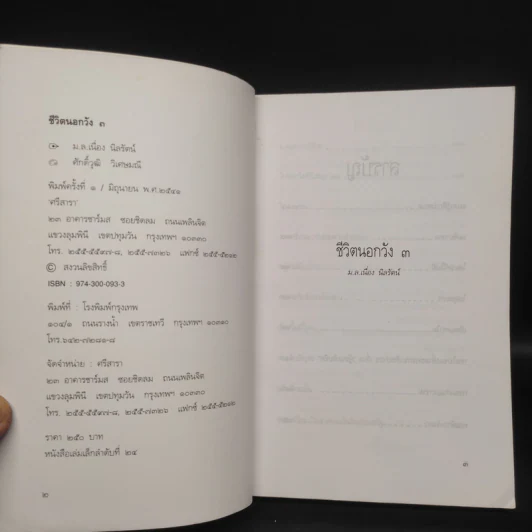 ชีวิตนอกวัง ๓
ม.ล.เนื่อง นิลรัตน์
ศักดิ์วุฒิ วิเศษมณี
พิมพ์ครั้งที่ ๑ / มิถุนายน พ.ศ.๒๕๔๑
ศรีสารา
๒๓ อาคารชาร์มส ซอยชิดลม ถนนเพลินจิต
แขวงลุมพินี เขตปทุมวัน กรุงเทพฯ ๑๐๓๓๐
โทร. ๒๕๕-๕๕๙๗-๘, ๒๕๕-๗๓๒๖ แฟกซ์ ๒๕๕-๕๒๑๒
© สงวนลิขสิทธิ์
ISBN : 974-300-093-3
พิมพ์ที่ : โรงพิมพ์กรุงเทพ
๑๐๔/๑ ถนนรางน้ำ เขตราชเทวี กรุงเทพฯ ๑๐๓๑๐
โทร.๖๔๒-๗๒๘๑-๘
จัดจำหน่าย : ศรีสารา
๒๓ อาคารชาร์มส ซอยชิดลม ถนนเพลินจิต
แขวงลุมพินี เขตปทุมวัน กรุงเทพฯ ๑๐๓๓๐
โทร. ๒๕๕-๕๕๙๗-๘, ๒๕๕-๗๓๒๖ แฟกซ์ ๒๕๕-๕๒๑๒
ราคา ๒๕๐ บาท
หนังสือเล่มเล็กลำดับที่ ๒๔
๒
ชีวิตนอกวัง ๓
ม.ล.เนื่อง นิลรัตน์
๓